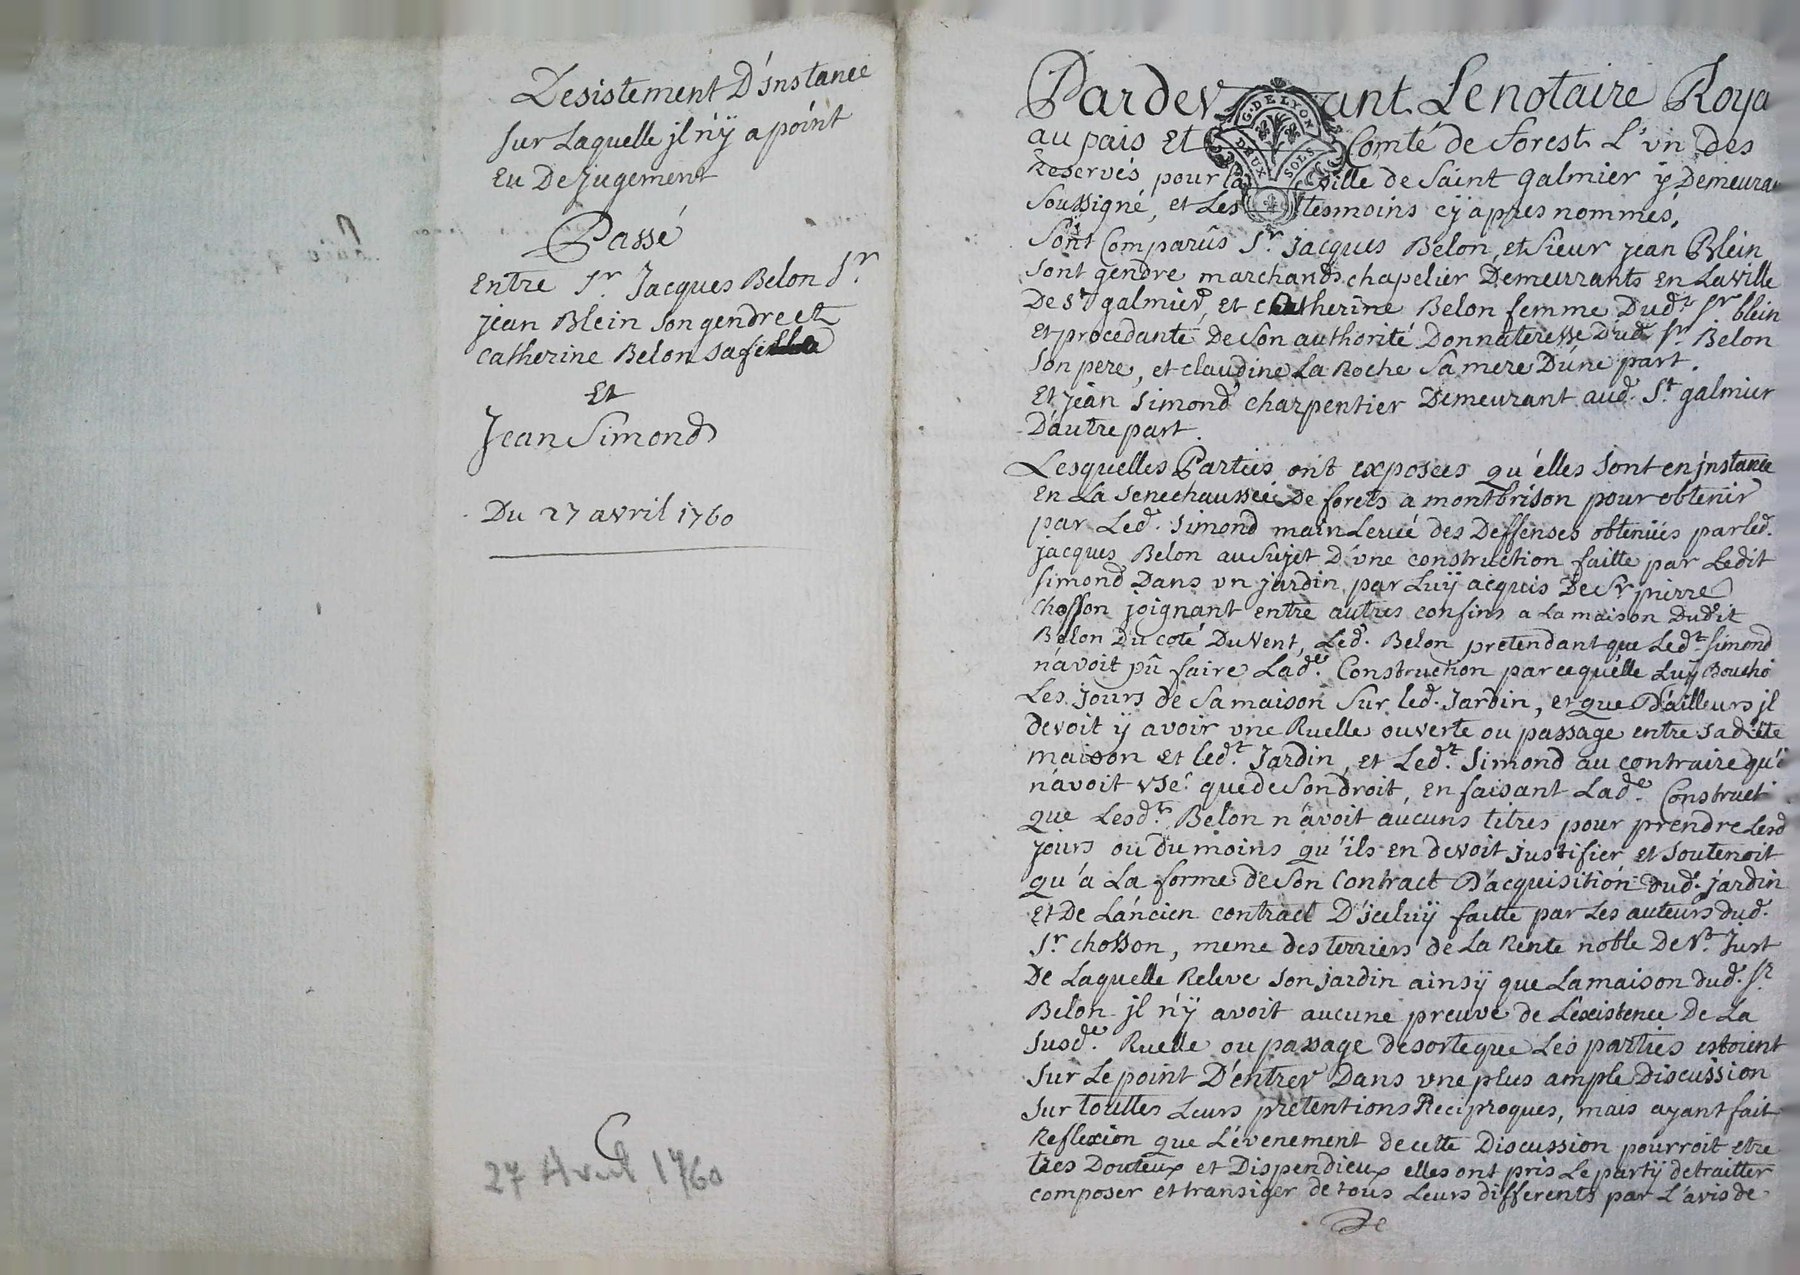 Desistement D'jnstance
sur Laquelle jl n'ÿ a point
Eu De Jugement
Passé
Entre Sr. Jacques Belon Sr.
jean Blein son gendre et
Catherine Belon sa fille
Et
Jean Simond
Du 27 avril 1760
27 Avril 1760
Pardevant Le notaire Roya
au païs Et Comté de forest L'vn des
Reservés pour la ville de Saint galmier ÿ Demeura
Soussigné, et Les tesmoins cÿ apres nommés,
Sont Comparûs Sr. Jacques Belon, et Sieur jean Blein
Sont gendre marchands chapelier Demeurants En La ville
De St galmier, et Catherine Belon femme Dudt. Sr. blein
Et procedante De Son authorité Donnateresse Dud. Sr. Belon
Son pere, et claudine La Roche Sa mere D'une part.
Et jean Simond charpentier Demeurant aud. St. galmier
D'autre part.
Lesquelles Parties ont exposées qu'elles sont en jnstance
En La Senechaussée De forets a montbrison pour obtenir
par Led. Simond main Levée des Deffenses obtenües par led.
jacques Belon au Sujet D'vne construction faitte par Ledit
Simond Dans vn jardin par Luÿ acquis De Sr pierre
Chosson joignant entre autres confins a La maison Dudit
Belon Du coté Du Vent, Led. Belon pretendant que Ledt. Simond
n'avoit pû faire Lade. Construction parce qu'elle Luy Bouchó
Les Jours de Sa maison Sur led. Jardin, et que D'ailleurs jl
devoit ÿ avoir vne Ruelle ouverte ou passage entre sa ditte
maison Et ledt. Jardin, et Ledt. Simond au contraire qu'il
n'avoit vsé que de Son droit, En faisant Lade. Construct
que Lesdts. Belon n'avoit aucuns titres pour prendre Lesd
jours ou du moins qu'ils en devoit justifier et Soutenoit
qu'a La forme de Son Contract D'acquisition dud. jardin
Et De L'ancien contract D'jceluÿ faitte par Les auteurs dud.
Sr. chosson, meme des terriers de La Rente noble De St. Just
De Laquelle Releve Son jardin ainsÿ que La maison dud. Sr.
Belon jl n'ÿ avoit aucune preuve de L'existence De La
Susde. Ruelle ou passage de sorte que Les parties estoient
Sur Le point D'entrer Dans vne plus ample Discussion
Sur touttes Leurs pretentions Reciproques, mais ayant fait
Reflexion que L'evenement de cette Discussion pourroit etre
tres Douteux et Dispendieux elles ont pris Le partÿ de traitter
composer et transiger de tous Leurs differents par L'avis de